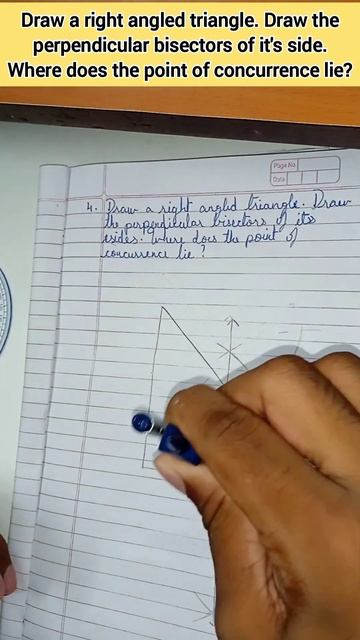 Draw a right angled triangle. Draw the
perpendicular bisectors of it's side.
Where does the point of concurrence lie?
Page No.
Date
4. Draw a right angled triangle. Draw
the perpendicular bisectors of its
sides. Where does the point of
concurrence lie?